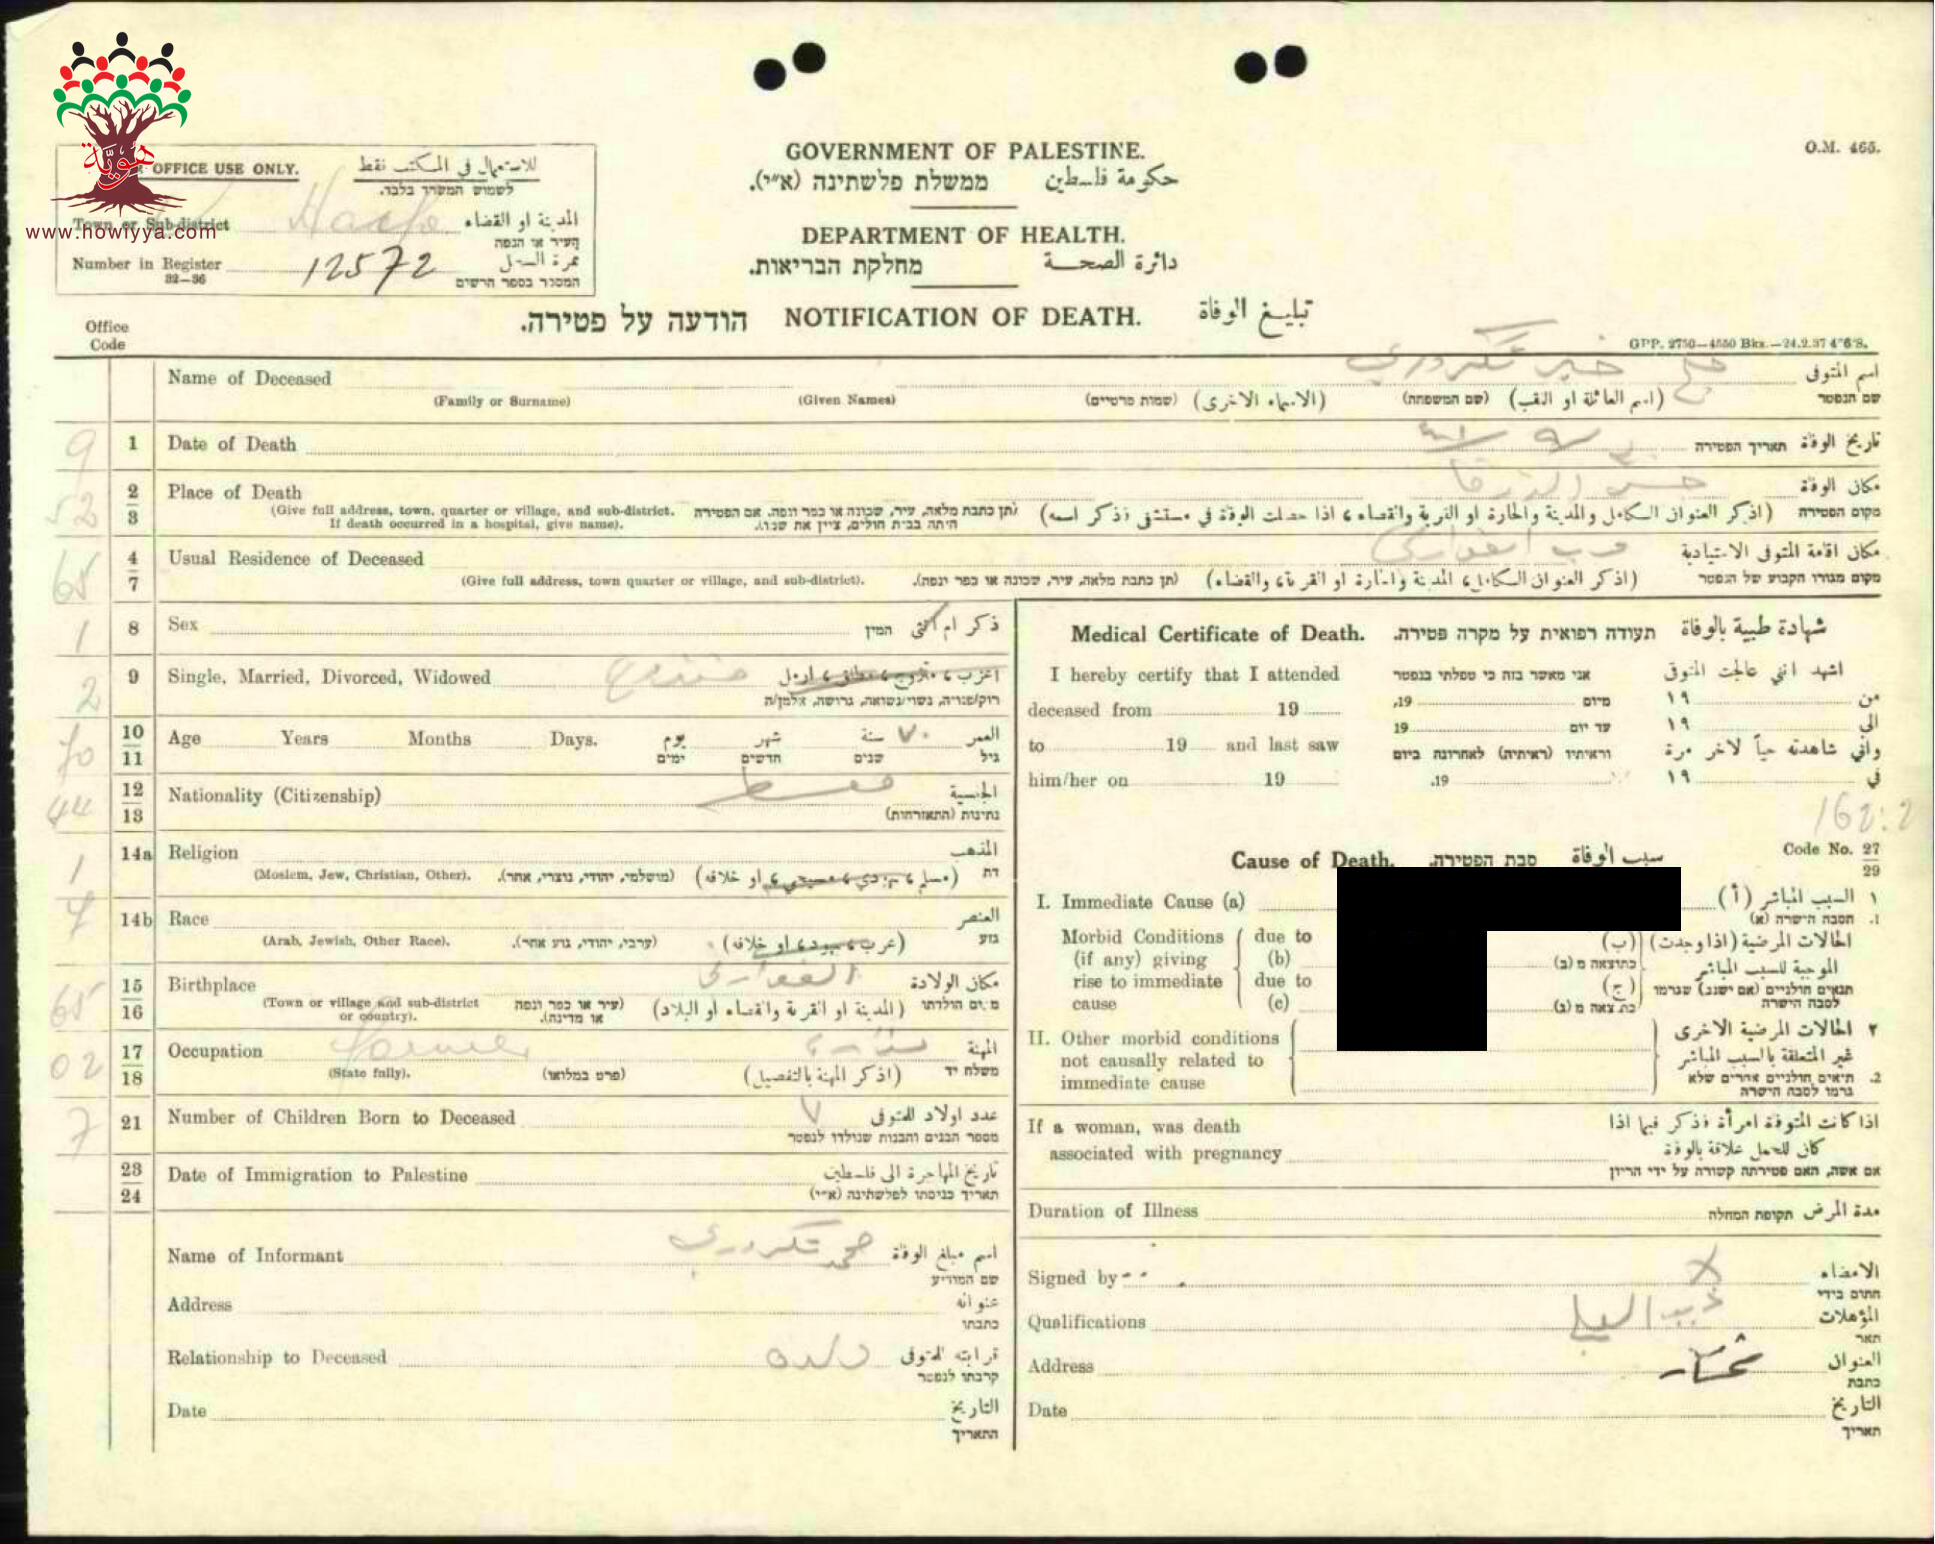 هوية
www.howiyya.com
OFFICE USE ONLY. للاستعمال في المكتب فقط
לשמוש המשרד בלבד.
Town or Sub-district Haifa المدينة او القضاء
העיר או הנפה
Number in Register 12572 نمرة السجل
32—36 המספר בספר הרשום
GOVERNMENT OF PALESTINE.
ממשלת פלשתינה (א״י). حكومة فلسطين
DEPARTMENT OF HEALTH.
מחלקת הבריאות. دائرة الصحة
O.M. 465.
הודעה על פטירה. NOTIFICATION OF DEATH. تبليغ الوفاة
Office
Code
GPP. 2750—4550 Bks.—24.2.37 4"6'S.
Name of Deceased اسم المتوفى
(Family or Surname) (Given Names) (שמות פרטיים) (الاسماء الاخرى) (שם המשפחה) (اسم العائلة او اللقب) שם הנפטר
9 1 Date of Death תאריך הפטירה تاريخ الوفاة
52 2 Place of Death مكان الوفاة
3 (Give full address, town, quarter or village, and sub-district. (תן כתבת מלאה, עיר, שכונה או כפר ונפה. אם הפטירה (اذكر العنوان الكامل والمدينة والحارة او القرية والقضاء، اذا حصلت الوفاة في مستشفى فذكر اسمه) מקום הפטירה
If death occurred in a hospital, give name). היתה בבית חולים, ציין את שמו).
65 4 Usual Residence of Deceased مكان اقامة المتوفى الاعتيادية
7 (Give full address, town quarter or village, and sub-district). (תן כתבת מלאה, עיר, שכונה או כפר ונפה). (اذكر العنوان الكامل، المدينة والحارة او القرية، والقضاء) מקום מגורו הקבוע של הנפטר
1 8 Sex המין ذكر ام انثى
2 9 Single, Married, Divorced, Widowed متزوج اعزب، متزوج، مطلق، ارمل
רוק/פנויה, נשוי/נשואה, גרושה, אלמן/ה
70 10 Age Years Months Days. يوم شهر ٧٠ سنة العمر
11 ימים חדשים שנים גיל
44 12 Nationality (Citizenship) الجنسية
13 נתינות (התאזרחות)
1 14a Religion المذهب
(Moslem, Jew, Christian, Other). (מושלמי, יהודי, נוצרי, אחר). (مسلم، يهودي، مسيحي، او خلافه) דת
7 14b Race العنصر
(Arab, Jewish, Other Race). (ערבי, יהודי, גזע אחר). (عرب، يهود، او خلافه) גזע
65 15 Birthplace مكان الولادة
16 (Town or village and sub-district (עיר או כפר ונפה (المدينة او القرية والقضاء او البلاد) מקום הולדתו
or country). או מדינה).
02 17 Occupation Farmer المهنة
18 (State fully). (פרט במלואו) (اذكر المهنة بالتفصيل) משלח יד
7 21 Number of Children Born to Deceased ٧ عدد اولاد المتوفى
מספר הבנים והבנות שנולדו לנפטר
23 Date of Immigration to Palestine تاريخ المهاجرة الى فلسطين
24 תאריך כניסתו לפלשתינה (א״י)
Name of Informant محمد تكروري اسم مبلغ الوفاة
שם המודיע
Address عنوانه
כתבתו
Relationship to Deceased ولده قرابته للمتوفى
קרבתו לנפטר
Date التاريخ
התאריך
Medical Certificate of Death. תעודה רפואית על מקרה פטירה. شهادة طبية بالوفاة
I hereby certify that I attended אני מאשר בזה כי טפלתי בנפטר اشهد انني عالجت المتوفى
deceased from 19 מיום 19, من ١٩
to 19 and last saw עד יום 19 الى ١٩
וראיתיו (ראיתיה) לאחרונה ביום واني شاهدته حياً لآخر مرة
him/her on 19 19. في ١٩
162:2
Cause of Death. סבת הפטירה. سبب الوفاة Code No. 27
29
I. Immediate Cause (a) السبب المباشر (أ) ١
הסבה הישרה (א) .1
Morbid Conditions due to الحالات المرضية (اذا وجدت) (ب)
(if any) giving (b) כתוצאה מ (ב) الموجبة للسبب المباشر
rise to immediate due to (ج) תנאים חולניים (אם ישנם) שגרמו
cause (c) כתוצאה מ (ג) לסבה הישרה
II. Other morbid conditions الحالات المرضية الاخرى ٢
not causally related to غير المتعلقة بالسبب المباشر
immediate cause תנאים חולניים אחרים שלא .2
גרמו לסבה הישרה
If a woman, was death اذا كانت المتوفة امرأة فذكر فيما اذا
associated with pregnancy كان للحمل علاقة بالوفاة
אם אשה, האם פטירתה קשורה על ידי הריון
Duration of Illness תקופת המחלה مدة المرض
Signed by الامضاء
חתום בידי
Qualifications المؤهلات
תאר
Address العنوان
כתבת
Date التاريخ
תאריך